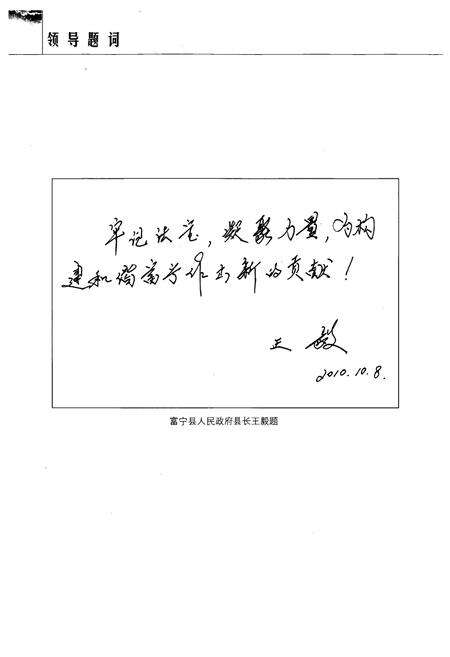 领导题词
牢记法宝，凝聚力量，为构
建和谐富宁作出新的贡献！
王毅
2010.10.8.
富宁县人民政府县长王毅题